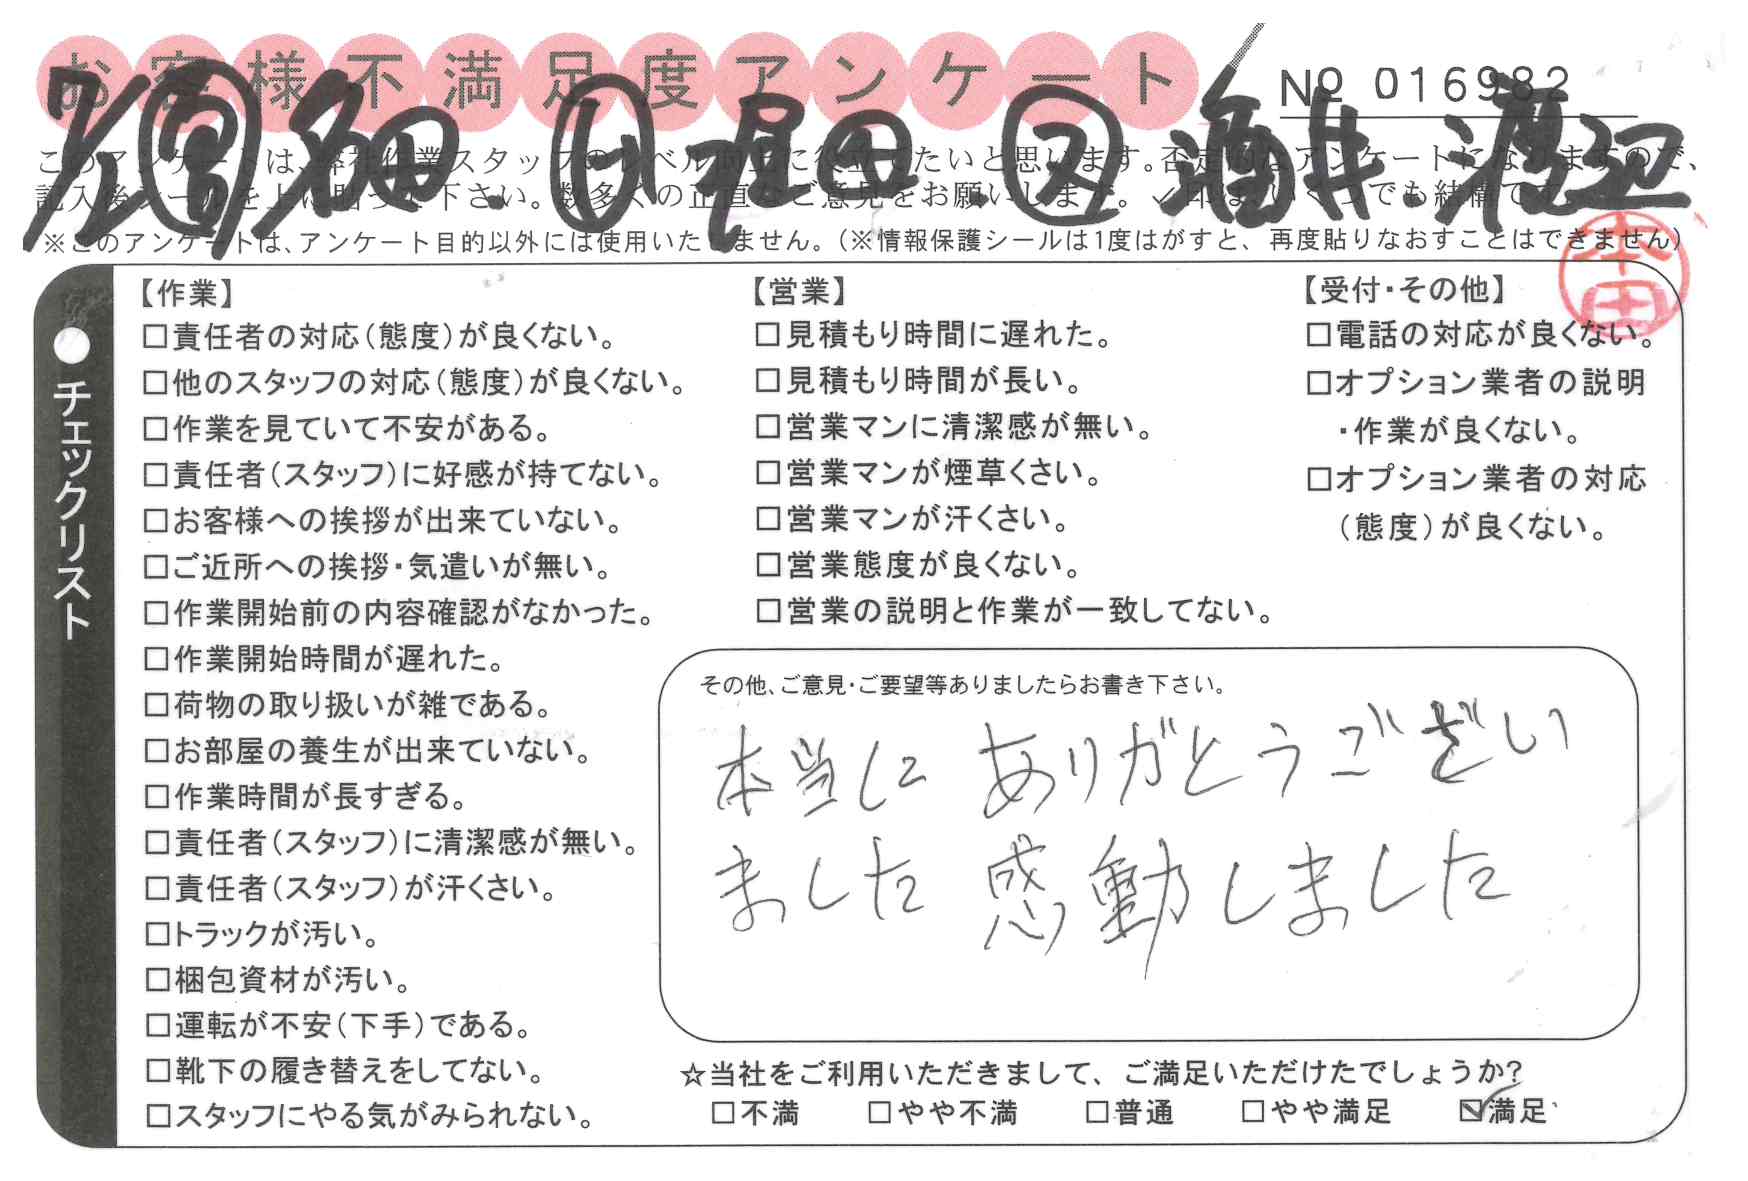 お客様不満足度アンケート
No 016982
7/2 営 名田 リ 堀田 ス 酒井 渡辺
このアンケートは、弊社作業スタッフのレベル向上に役立てたいと思います。否定的なアンケートになりますので、
記入後シールを上に貼って下さい。数多くの正直なご意見をお願いします。✓印は、いくつでも結構です。
※このアンケートは、アンケート目的以外には使用いたしません。(※情報保護シールは1度はがすと、再度貼りなおすことはできません)
本田
●チェックリスト
【作業】
□責任者の対応(態度)が良くない。
□他のスタッフの対応(態度)が良くない。
□作業を見ていて不安がある。
□責任者(スタッフ)に好感が持てない。
□お客様への挨拶が出来ていない。
□ご近所への挨拶・気遣いが無い。
□作業開始前の内容確認がなかった。
□作業開始時間が遅れた。
□荷物の取り扱いが雑である。
□お部屋の養生が出来ていない。
□作業時間が長すぎる。
□責任者(スタッフ)に清潔感が無い。
□責任者(スタッフ)が汗くさい。
□トラックが汚い。
□梱包資材が汚い。
□運転が不安(下手)である。
□靴下の履き替えをしてない。
□スタッフにやる気がみられない。
【営業】
□見積もり時間に遅れた。
□見積もり時間が長い。
□営業マンに清潔感が無い。
□営業マンが煙草くさい。
□営業マンが汗くさい。
□営業態度が良くない。
□営業の説明と作業が一致してない。
【受付・その他】
□電話の対応が良くない。
□オプション業者の説明
・作業が良くない。
□オプション業者の対応
(態度)が良くない。
その他、ご意見・ご要望等ありましたらお書き下さい。
本当に ありがとうござい
ました 感動しました
☆当社をご利用いただきまして、ご満足いただけたでしょうか?
□不満 □やや不満 □普通 □やや満足 ☑満足